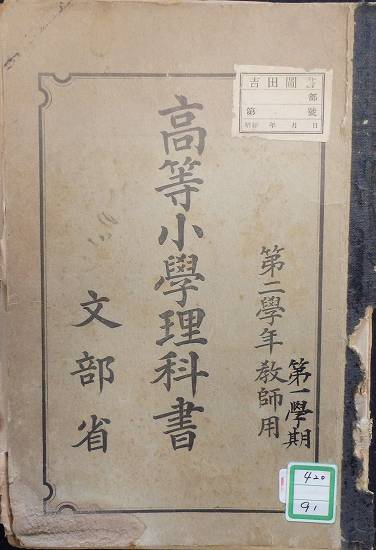 吉田圖書
部
第 號
昭和 年 月 日
第二學年教師用
第一學期
高等小學理科書
文部省
420
91